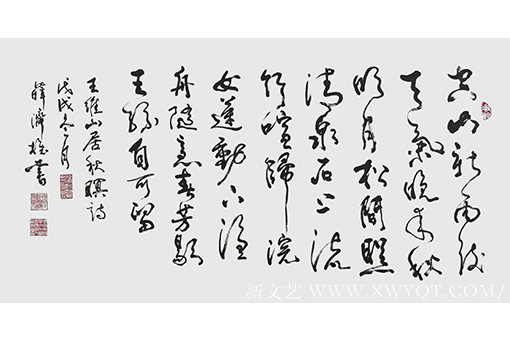 空山新雨後
天氣晚來秋
明月松間照
清泉石上流
竹喧歸浣
女蓮動下漁
舟隨意春芳歇
王孫自可留
王維山居秋暝詩
戊戌冬月
書
新文艺 WWW.XWYQT.COM/